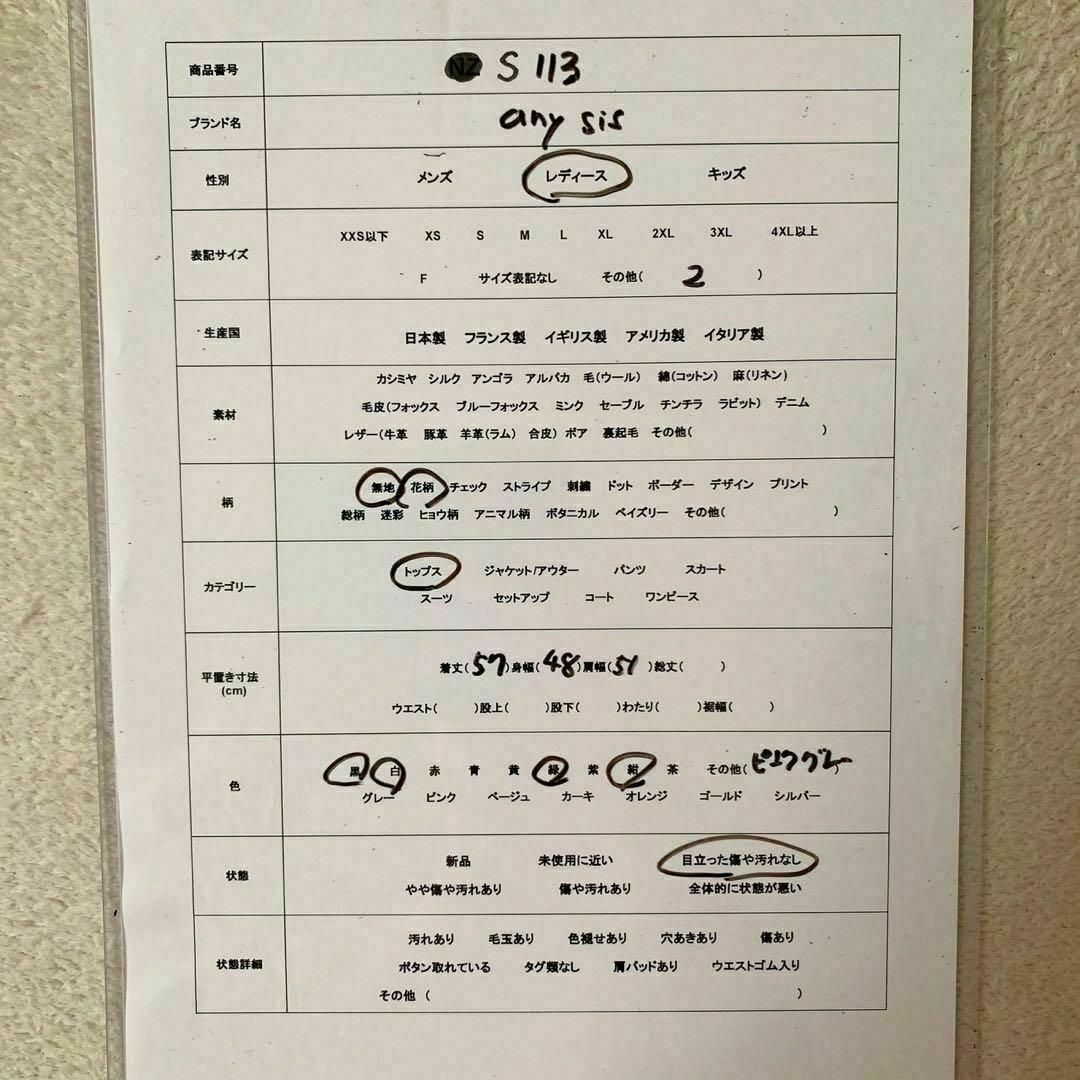 商品番号 NZ S 113
ブランド名 any sis
性別 メンズ レディース キッズ
表記サイズ XXS以下 XS S M L XL 2XL 3XL 4XL以上
F サイズ表記なし その他( 2 )
生産国 日本製 フランス製 イギリス製 アメリカ製 イタリア製
カシミヤ シルク アンゴラ アルパカ 毛(ウール) 綿(コットン) 麻(リネン)
素材 毛皮(フォックス ブルーフォックス ミンク セーブル チンチラ ラビット) デニム
レザー(牛革 豚革 羊革(ラム) 合皮) ボア 裏起毛 その他( )
柄 無地 花柄 チェック ストライプ 刺繍 ドット ボーダー デザイン プリント
総柄 迷彩 ヒョウ柄 アニマル柄 ボタニカル ペイズリー その他( )
カテゴリー トップス ジャケット/アウター パンツ スカート
スーツ セットアップ コート ワンピース
平置き寸法 着丈(57)身幅(48)肩幅(51)総丈( )
(cm) ウエスト( )股上( )股下( )わたり( )裾幅( )
色 黒 白 赤 青 黄 緑 紫 紺 茶 その他(ピンクグレー)
グレー ピンク ベージュ カーキ オレンジ ゴールド シルバー
状態 新品 未使用に近い 目立った傷や汚れなし
やや傷や汚れあり 傷や汚れあり 全体的に状態が悪い
状態詳細 汚れあり 毛玉あり 色褪せあり 穴あきあり 傷あり
ボタン取れている タグ類なし 肩パッドあり ウエストゴム入り
その他 ( )